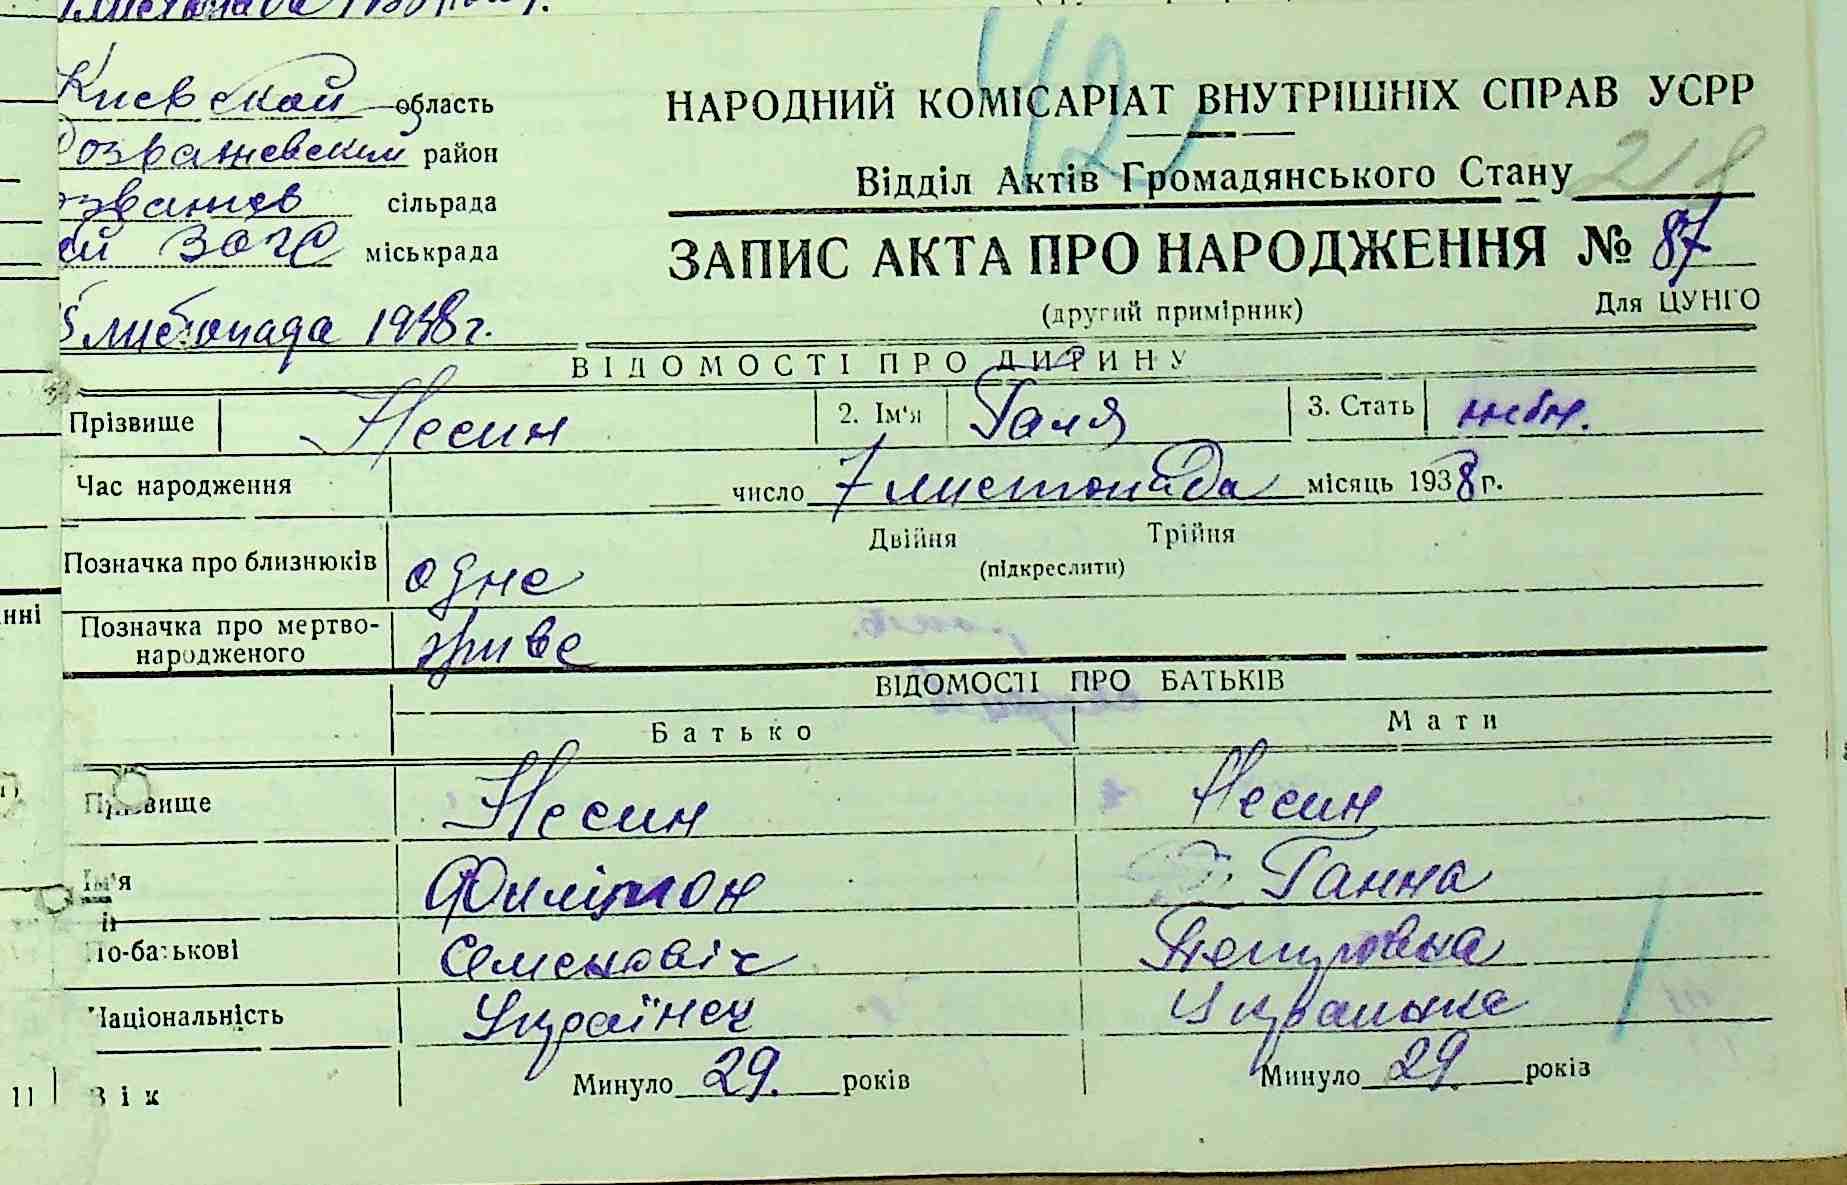 Киевской область
Розважевский район
озважев сільрада
ей ЗАГС міськрада
5 листопада 1938 г.
42
НАРОДНИЙ КОМІСАРІАТ ВНУТРІШНІХ СПРАВ УСРР
Відділ Актів Громадянського Стану 218
ЗАПИС АКТА ПРО НАРОДЖЕННЯ № 87
(другий примірник) Для ЦУНГО
ВІДОМОСТІ ПРО ДИТИНУ
Прізвище Несин 2. Ім'я Галя 3. Стать жін.
Час народження число 7 листопада місяць 1938 г.
Позначка про близнюків одне Двійня Трійня
(підкреслити)
Позначка про мертво-
народженого живе
ВІДОМОСТІ ПРО БАТЬКІВ
Батько Мати
Прізвище Несин Несин
Ім'я Филімон Ганна
й
По-батькові Семенович Петровна
Національність Українец Украинка
Вік Минуло 29. років Минуло 29. років
нні
11